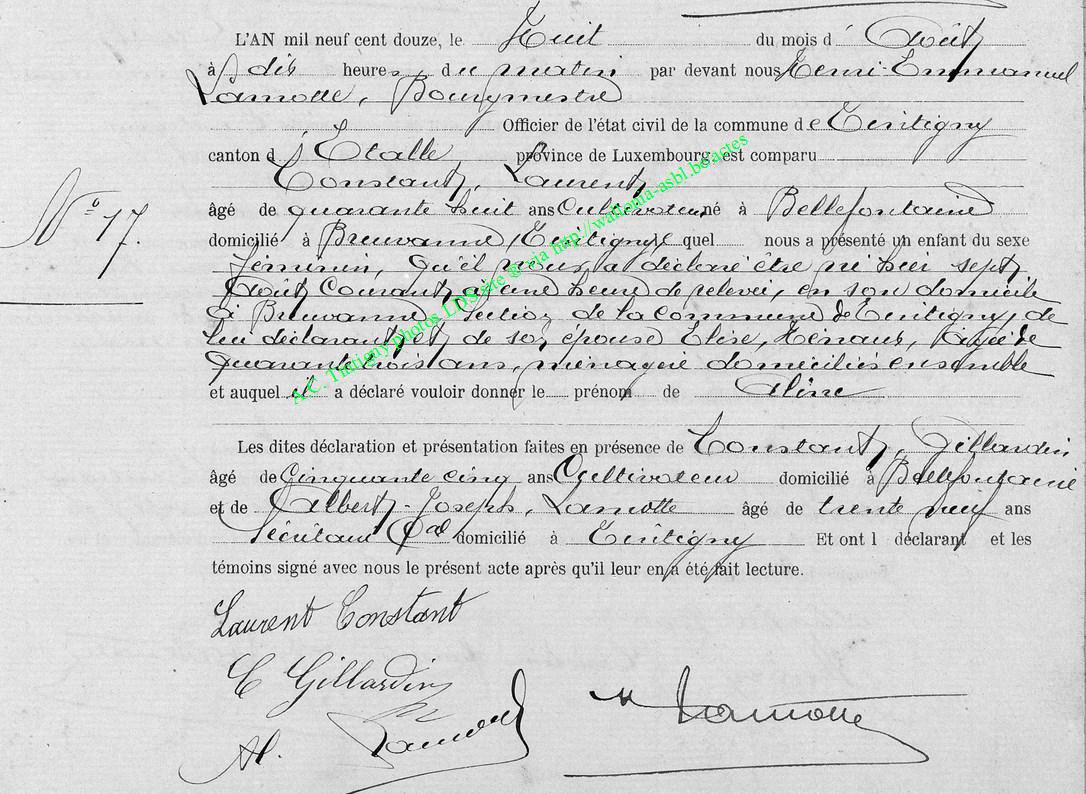 L'AN mil neuf cent douze, le Huit du mois d'Août
à dix heures du matin par devant nous Henri-Emmanuel
Lamotte, Bourgmestre
Officier de l'état civil de la commune de Tintigny
canton d'Etalle province de Luxembourg est comparu
Constant, Laurent
N° 17.
âgé de quarante huit ans Cultivateur né à Bellefontaine
domicilié à Breuvanne (Tintigny) quel nous a présenté un enfant du sexe
féminin, qu'il nous a déclaré être né hier sept
Août courant, à une heure de relevée, en son domicile
à Breuvanne, section de la commune de Tintigny, de
lui déclarant et de son épouse Elise, Hénaux, âgée de
quarante trois ans, ménagère domiciliés ensemble
et auquel il a déclaré vouloir donner le prénom de Aline
Les dites déclaration et présentation faites en présence de Constant, Gillardin
âgé de Cinquante cinq ans Cultivateur domicilié à Bellefontaine
et de Albert-Joseph, Lamotte âgé de trente neuf ans
Secrétaire Cal domicilié à Tintigny Et ont l déclarant et les
témoins signé avec nous le présent acte après qu'il leur en a été fait lecture.
Laurent Constant
C Gillardin
Al. Lamotte
Lamotte
A.C. Tintigny photos LDS site & via http://wallonia-asbl.be/actes